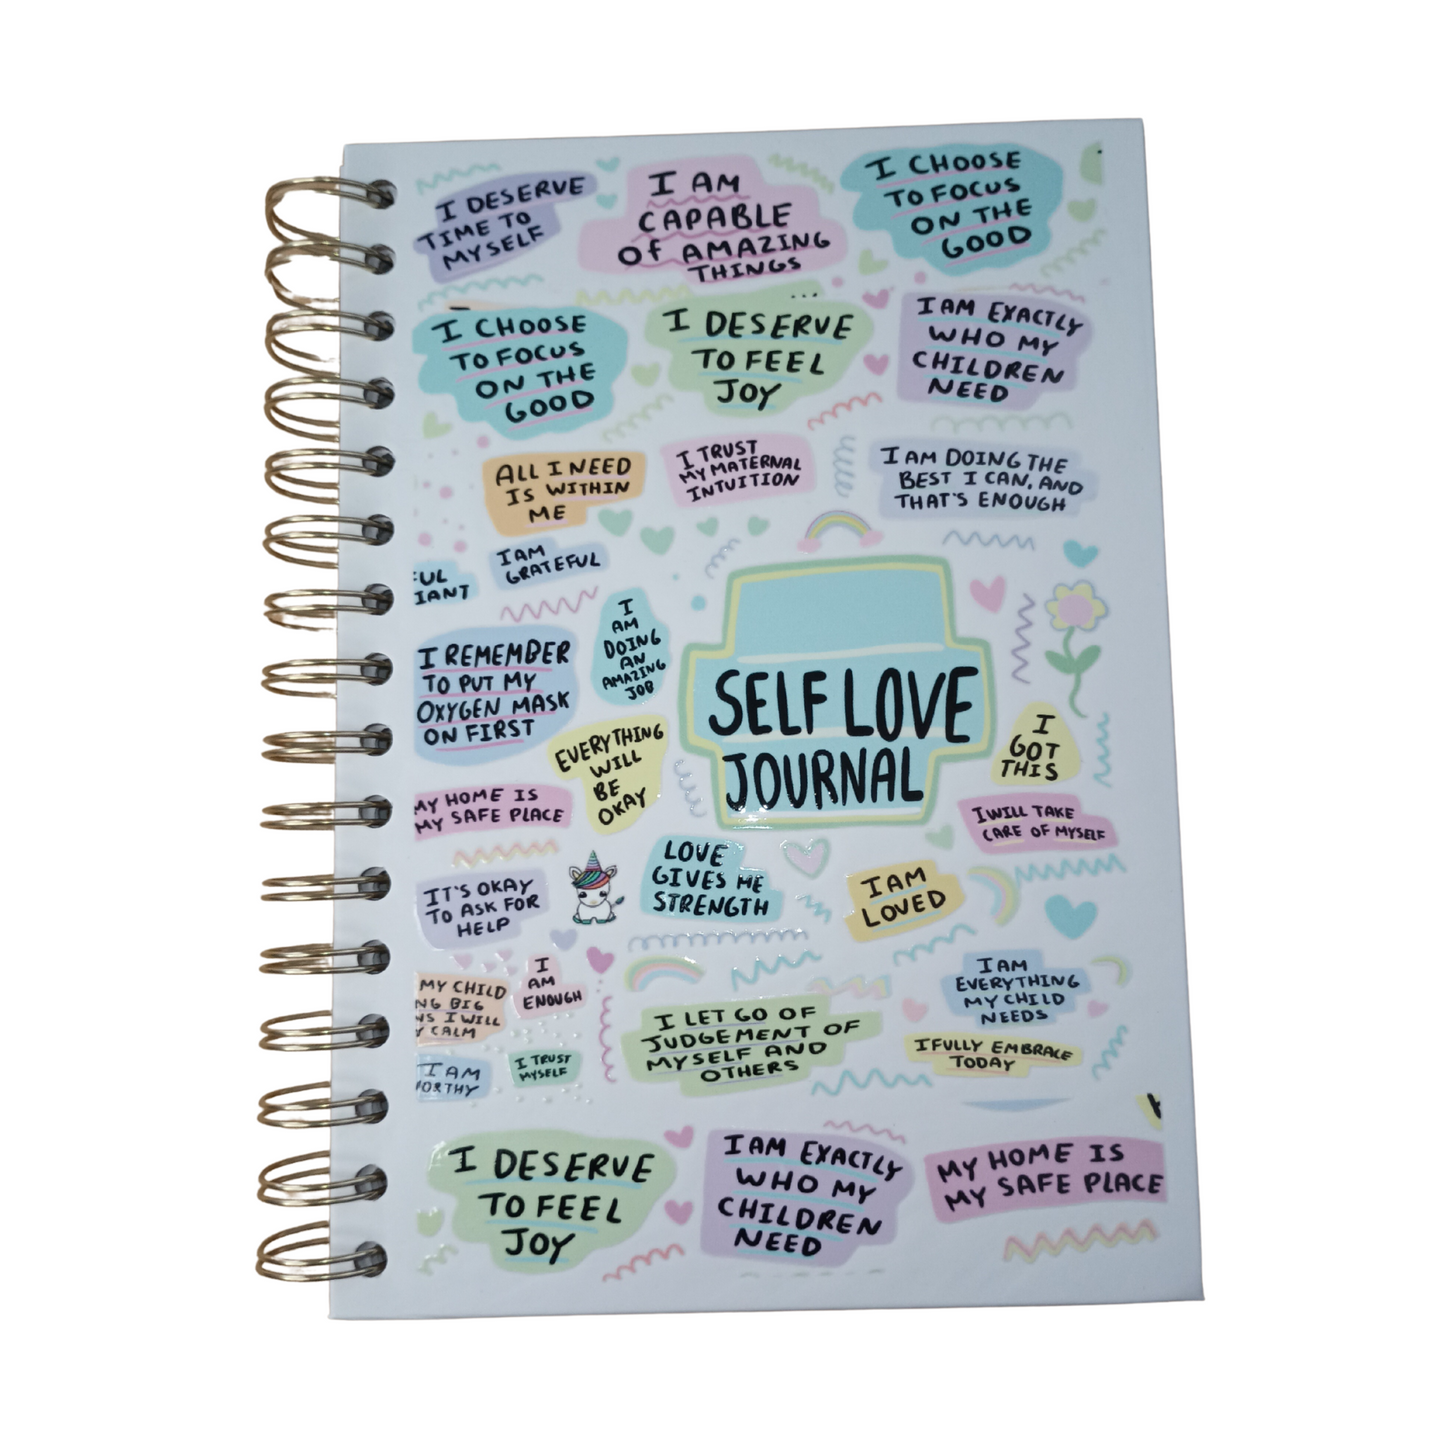 I DESERVE
TIME TO
MYSELF
I AM
CAPABLE
Of AMAZING
THINGS
I CHOOSE
TO FOCUS
ON THE
GOOD
I CHOOSE
TO FOCUS
ON THE
GOOD
I DESERVE
TO FEEL
JOY
I AM EXACTLY
WHO MY
CHILDREN
NEED
ALL I NEED
IS WITHIN
ME
I TRUST
MY MATERNAL
INTUITION
I AM DOING THE
BEST I CAN, AND
THAT'S ENOUGH
I AM
GRATEFUL
FUL
IANT
I REMEMBER
TO PUT MY
OXYGEN MASK
ON FIRST
I
AM
DOING
AN
AMAZING
JOB
SELF LOVE
JOURNAL
EVERYTHING
WILL
BE
OKAY
I
GOT
THIS
MY HOME IS
MY SAFE PLACE
I WILL TAKE
CARE OF MYSELF
IT'S OKAY
TO ASK FOR
HELP
LOVE
GIVES ME
STRENGTH
I AM
LOVED
MY CHILD
NG BIG
NS I WILL
Y CALM
I
AM
ENOUGH
I AM
EVERYTHING
MY CHILD
NEEDS
I LET GO OF
JUDGEMENT OF
MYSELF AND
OTHERS
I FULLY EMBRACE
TODAY
I AM
ORTHY
I TRUST
MYSELF
I DESERVE
TO FEEL
JOY
I AM EXACTLY
WHO MY
CHILDREN
NEED
MY HOME IS
MY SAFE PLACE